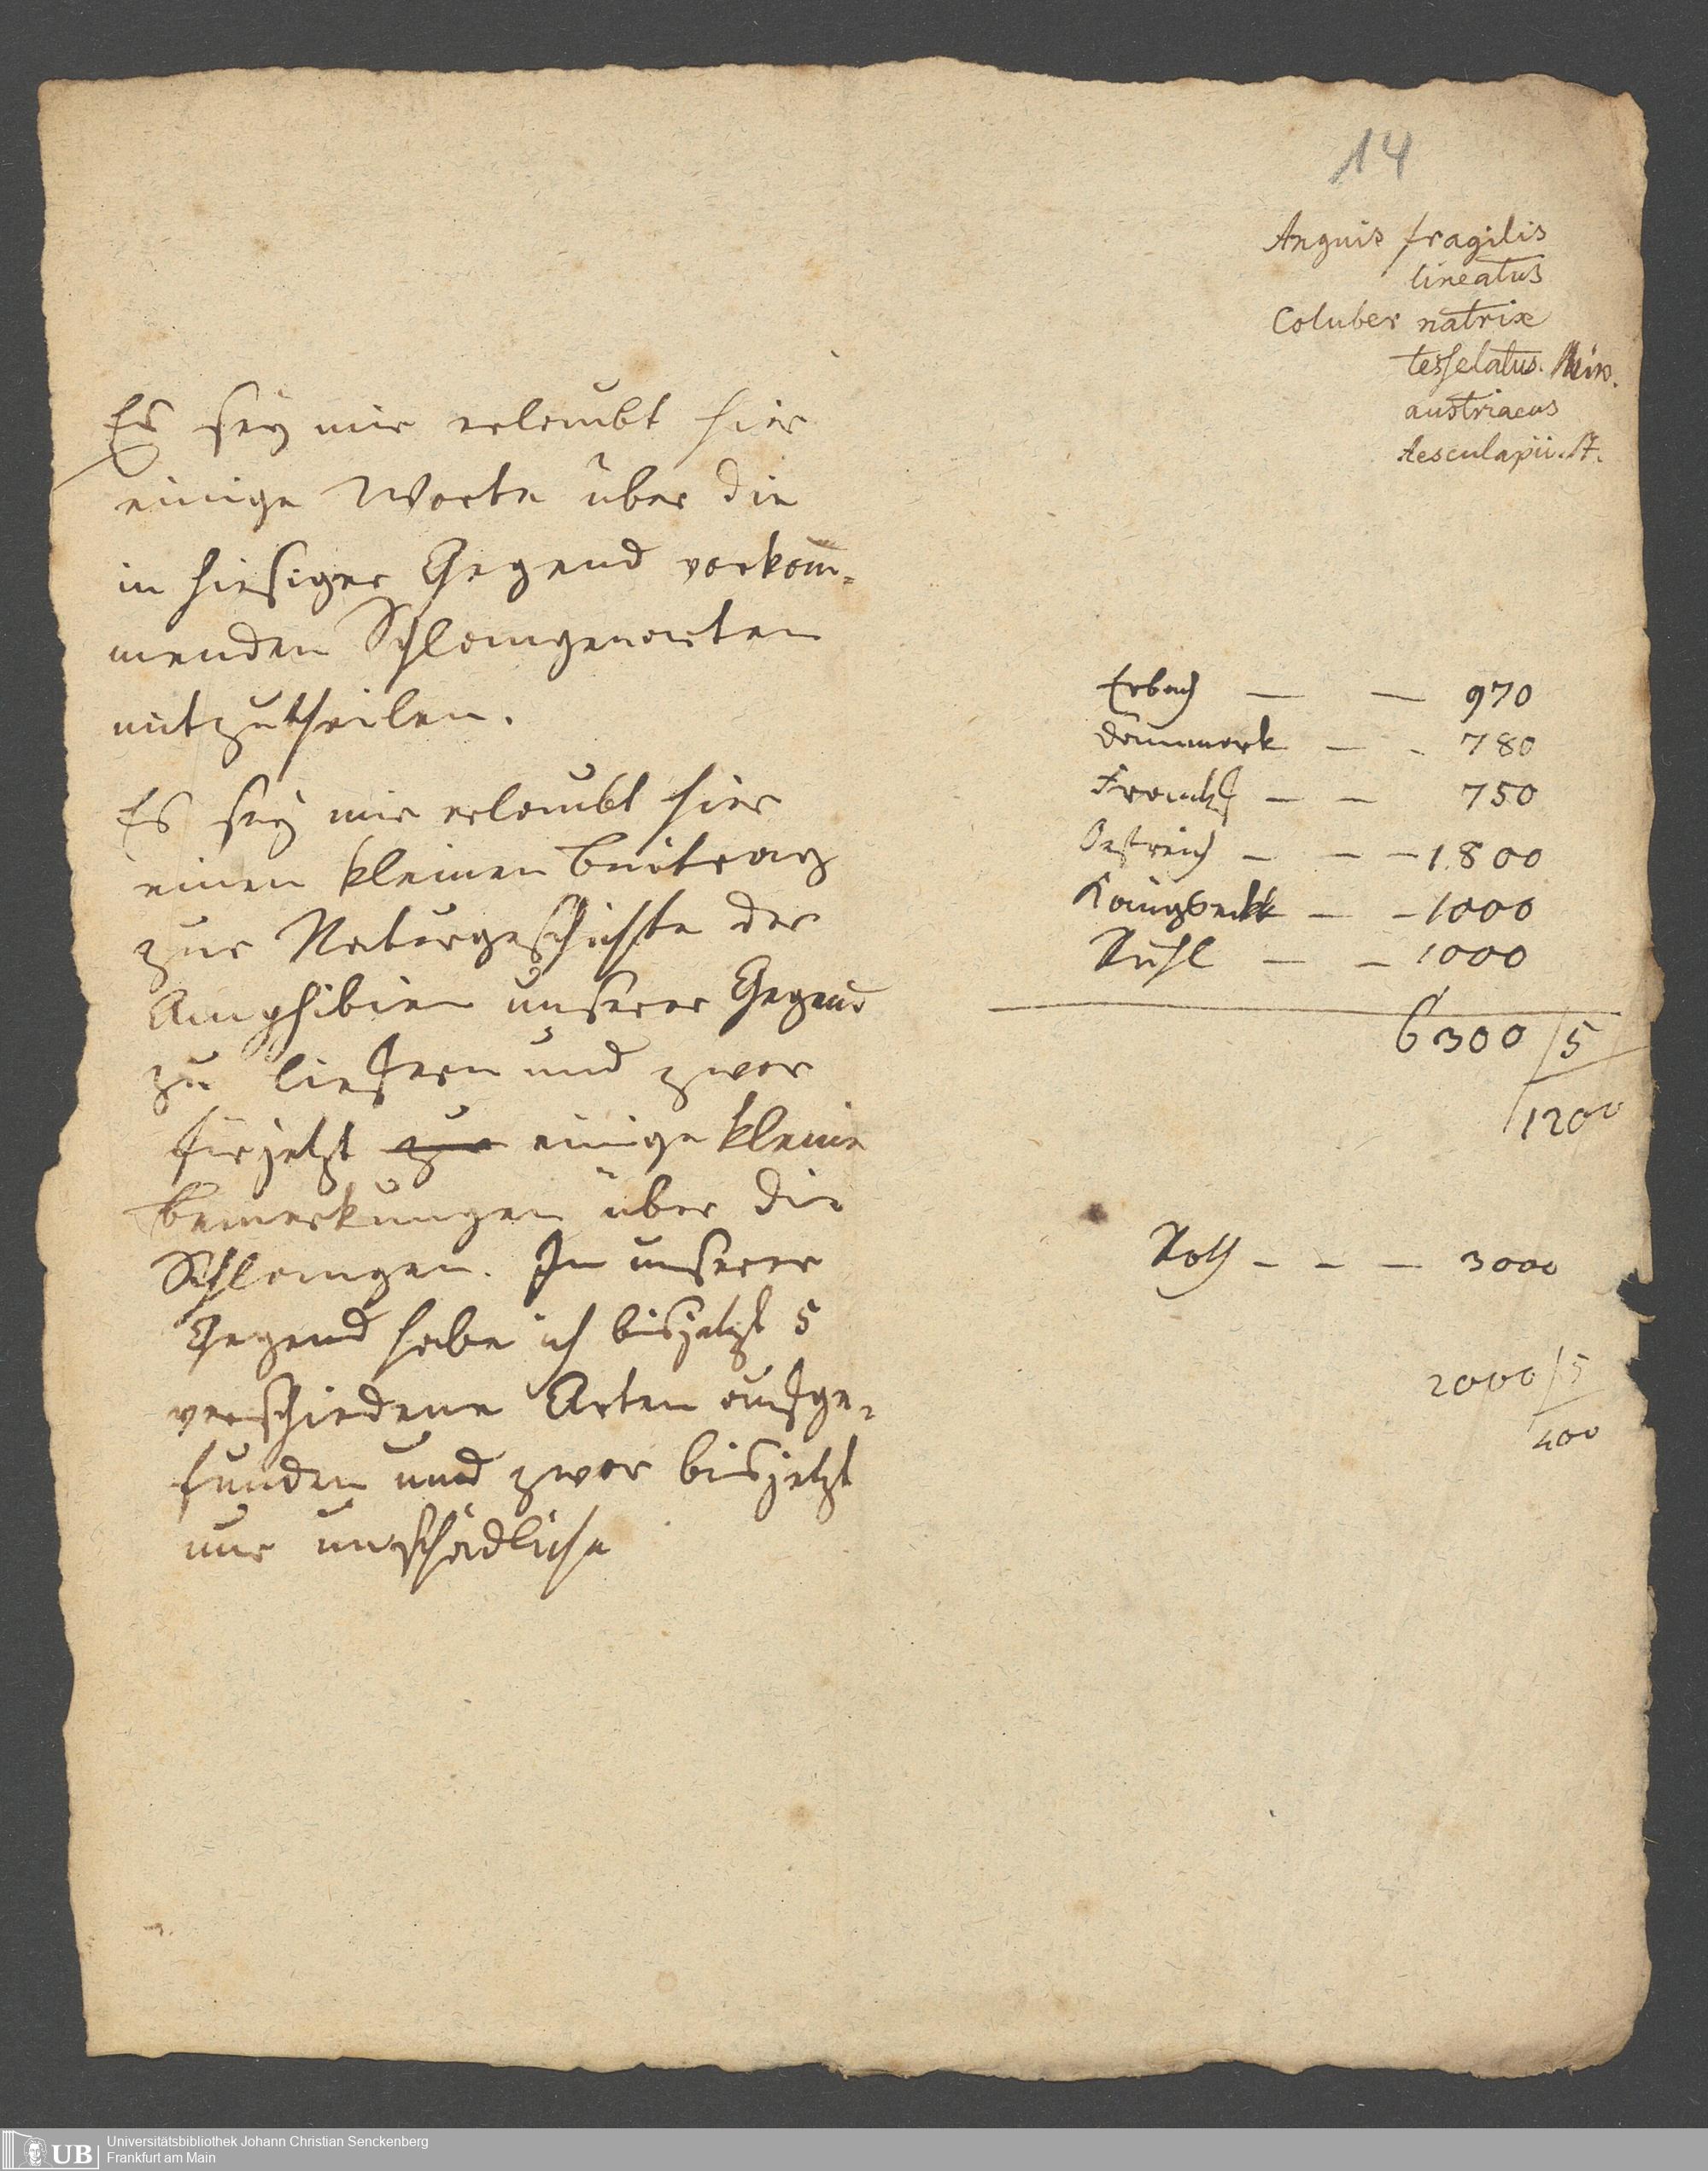 14
Anguis fragilis
lineatus
Coluber natrix
tesselatus.
austriacus
Aesculapii. St.
Es sey mir erlaubt hier
einige Worte über die
in hiesiger Gegend vorkom̅=
menden Schlangenarten
mitzutheilen.
Es sey mir erlaubt hier
einen kleinen Beitrag
zur Naturgeschichte der
Amphibien unserer Gegend
zu liefern und zwar
für jetzt zur einige kleine
Bemerkungen über die
Schlangen. In unserer
Gegend habe ich bisjetzt 5
verschiedene Arten aufge=
funden und zwar bisjetzt
nur unschädliche
Erbach — — 970
Dännmark — - 780
— — 750
Oestreich — — — 1800
— — 1000
Kuhl — — 1000
6300/5
1200
Roth — — — 3000
2000/5
400
UB
Universitätsbibliothek Johann Christian Senckenberg
Frankfurt am Main